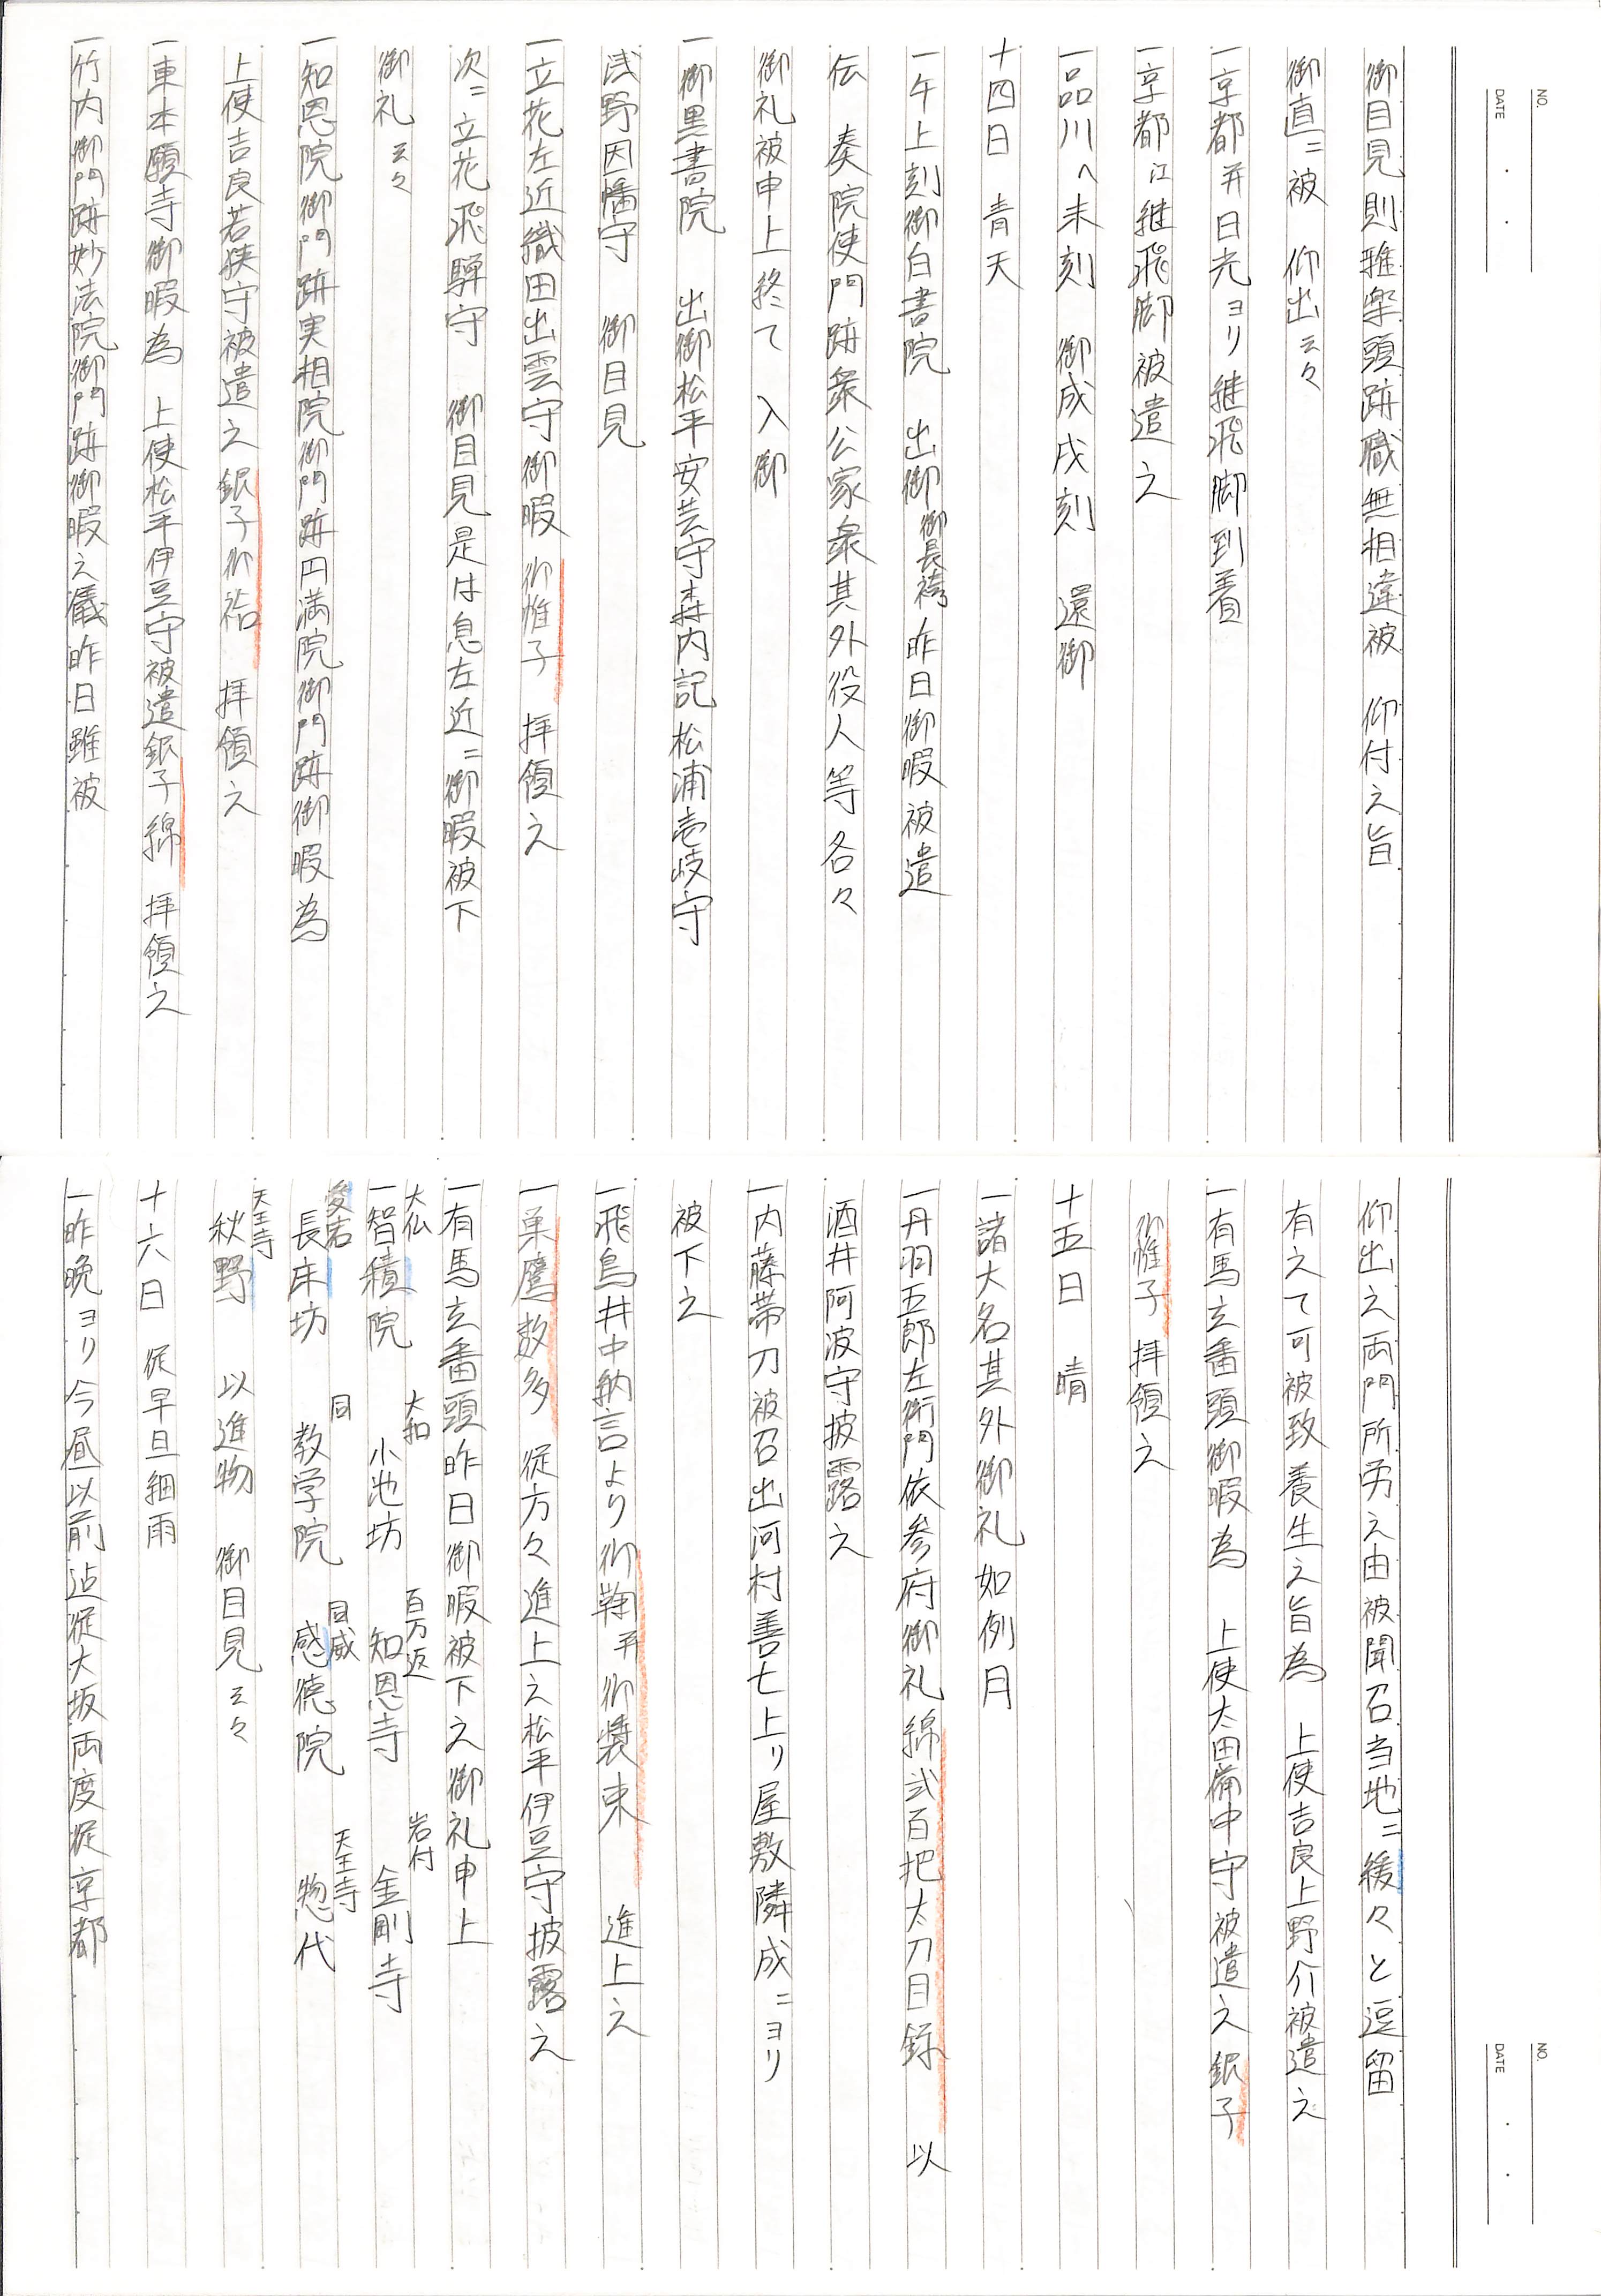 NO.
DATE
御目見則雅楽頭跡職無相違被　仰付之旨
御直ニ被　仰出云々
一京都并日光ヨリ継飛脚到着
一京都江継飛脚被遣之
一品川へ未刻　御成戌刻　還御
十四日　青天
一午上刻御白書院　出御御長袴昨日御暇被遣
伝　奏院使門跡衆公家衆其外役人等各々
御礼被申上終て　入御
一御黒書院　出御松平安芸守森内記松浦壱岐守
浅野因幡守　御目見
一立花左近織田出雲守御暇御帷子　拝領之
次ニ立花飛騨守　御目見是は息左近ニ御暇被下
御礼云々
一知恩院御門跡実相院御門跡円満院御門跡御暇為
上使吉良若狭守被遣之銀子御袷　拝領之
一東本願寺御暇為　上使松平伊豆守被遣銀子綿　拝領之
一竹内御門跡妙法院御門跡御暇之儀昨日雖被
NO.
DATE
仰出之両門所労之由被聞召当地ニ緩々と逗留
有之て可被致養生之旨為　上使吉良上野介被遣之
一有馬玄番頭御暇為　上使太田備中守被遣之銀子
御帷子　拝領之
十五日　晴
一諸大名其外御礼如例月
一丹羽五郎左衛門依参府御礼綿弐百把太刀目録　以
酒井阿波守披露之
一内藤帯刀被召出河村善七上リ屋敷隣成ニヨリ
被下之
一飛鳥井中納言より御鞠并御装束　進上之
一巣鷹数多　従方々進上之松平伊豆守披露之
一有馬玄番頭昨日御暇被下之御礼申上
大仏　大和　百万返　岩付
一智積院　小池坊　知恩寺　金剛寺
愛宕　同　同威　天王寺
長床坊　教学院　感徳院　惣代
天王寺
秋野　以進物　御目見云々
十六日　従早旦細雨
一昨晩ヨリ今昼以前迠従大坂両度従京都